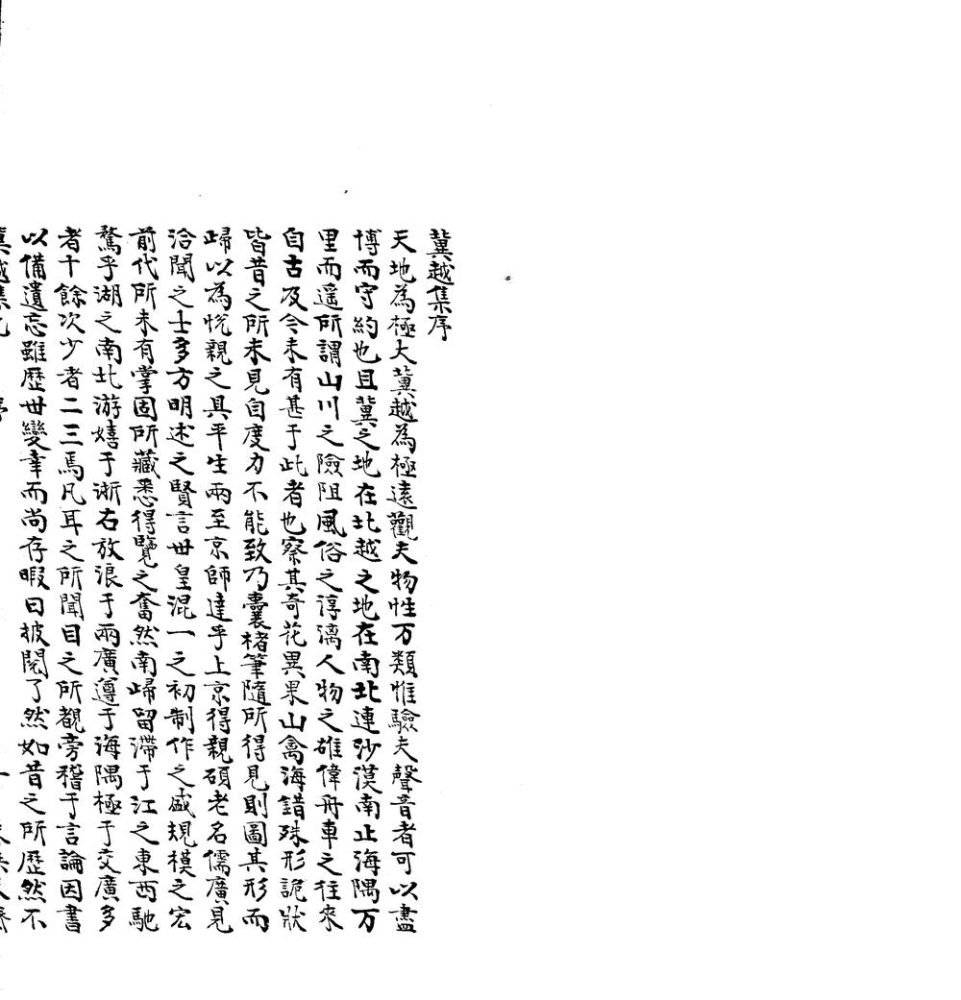 冀越集序
天地為極大冀越為極遠觀夫物性万類惟驗夫聲音者可以盡
博而守約也且冀之地在北越之地在南北連沙漠南止海隅万
里而遥所謂山川之險阻風俗之淳漓人物之雄偉舟車之往來
自古及今未有甚于此者也察其奇花異果山禽海錯殊形詭狀
皆昔之所未見自度力不能致乃囊楮筆隨所得見則圖其形而
歸以為悅親之具平生兩至京師達乎上京得親碩老名儒廣見
洽聞之士多方明述之賢言世皇混一之初制作之盛規模之宏
前代所未有掌固所藏悉得覽之奮然南歸留滯于江之東西馳
騖乎湖之南北游嬉于浙右放浪于兩廣遵于海隅極于交廣多
者千餘次少者二三焉凡耳之所聞目之所覩旁稽于言論因書
以備遺忘雖歷世變幸而尚存暇日披閱了然如昔之所歷然不